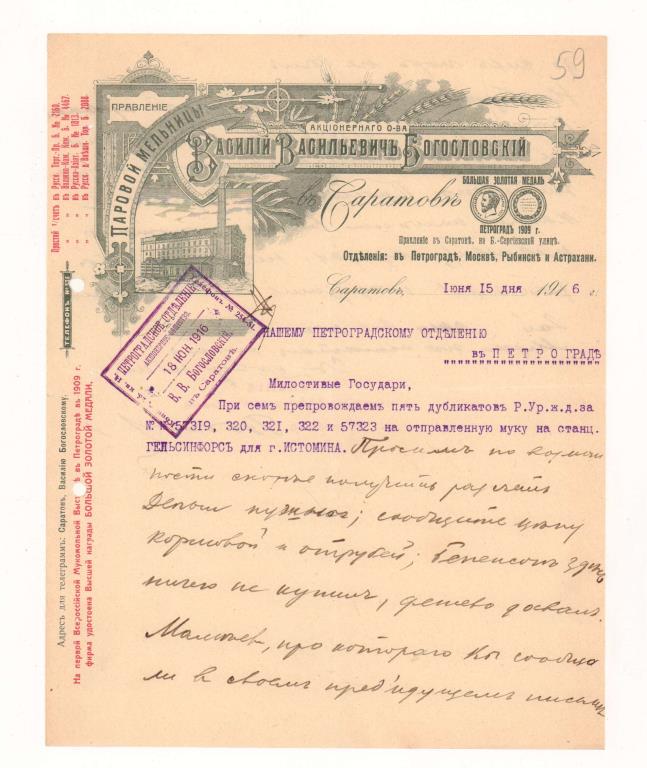 59
ПРАВЛЕНІЕ
ПАРОВОЙ МЕЛЬНИЦЫ
АКЦІОНЕРНАГО О-ВА
ВАСИЛІЙ ВАСИЛЬЕВИЧЪ БОГОСЛОВСКІЙ
въ Саратовѣ
БОЛЬШАЯ ЗОЛОТАЯ МЕДАЛЬ
ПЕТРОГРАДЪ 1909 г.
Правленіе въ Саратовѣ, на Б.-Сергіевской улицѣ.
Отдѣленія: въ Петроградѣ, Москвѣ, Рыбинскѣ и Астрахани.
Саратовъ, Іюня 15 дня 1916 г.
Телефонъ №
ПЕТРОГРАДСКОЕ ОТДѢЛЕНІЕ
18 ІЮН. 1916
В. В. Богословскій
въ Саратовѣ.
НАШЕМУ ПЕТРОГРАДСКОМУ ОТДѢЛЕНІЮ
въ ПЕТРОГРАДѢ
Милостивые Государи,
При семъ препровождаемъ пять дубликатовъ Р.Ур.ж.д.за
№ № 57319, 320, 321, 322 и 57323 на отправленную муку на станц.
ГЕЛЬСИНФОРСЪ для г.ИСТОМИНА. Просимъ по возмож
ности скорѣе получить разсчетъ
Деньги нужны; сообщите цѣну
кормовой и отрубей; здѣсь
ничего не купилъ, дешево давалъ.
про котораго Вы сообща
ли въ своемъ предъидущемъ письмѣ
ТЕЛЕФОНЪ №
Адресъ для телеграммъ: Саратовъ, Василію Богословскому.
На первой Всероссійской Мукомольной Выставкѣ въ Петроградѣ въ 1909 г.
фирма удостоена Высшей награды БОЛЬШОЙ ЗОЛОТОЙ МЕДАЛИ.